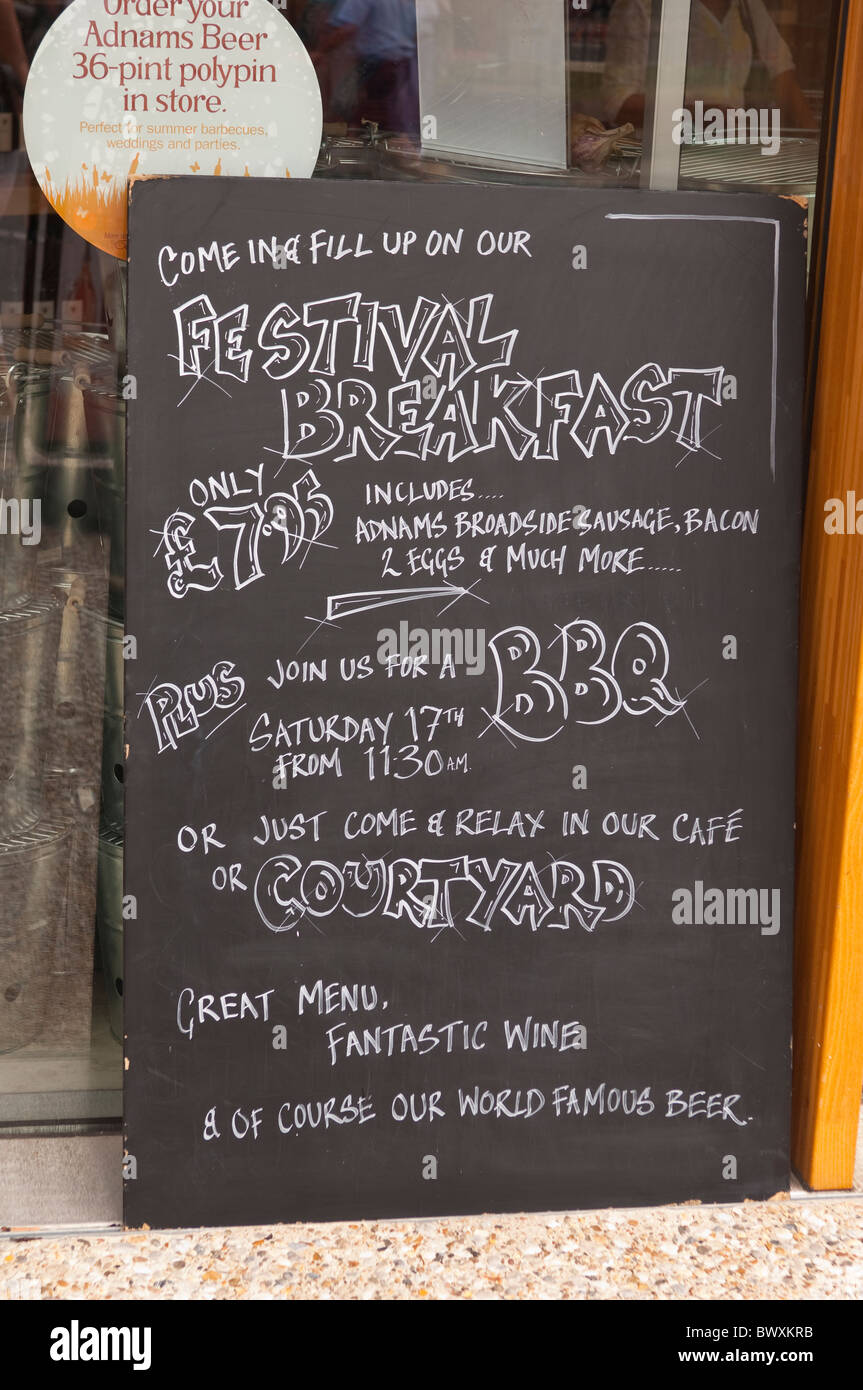 Order your
Adnams Beer
36-pint polypin
in store.
Perfect for summer barbecues,
weddings and parties.
COME IN & FILL UP ON OUR
FESTIVAL
BREAKFAST
ONLY
£7.95
INCLUDES....
ADNAMS BROADSIDE SAUSAGE, BACON
2 EGGS & MUCH MORE.....
PLUS JOIN US FOR A BBQ
SATURDAY 17TH
FROM 11.30AM.
OR JUST COME & RELAX IN OUR CAFÉ
OR COURTYARD
GREAT MENU,
FANTASTIC WINE
& OF COURSE OUR WORLD FAMOUS BEER.
alamy
Image ID: BWXKRB
www.alamy.com